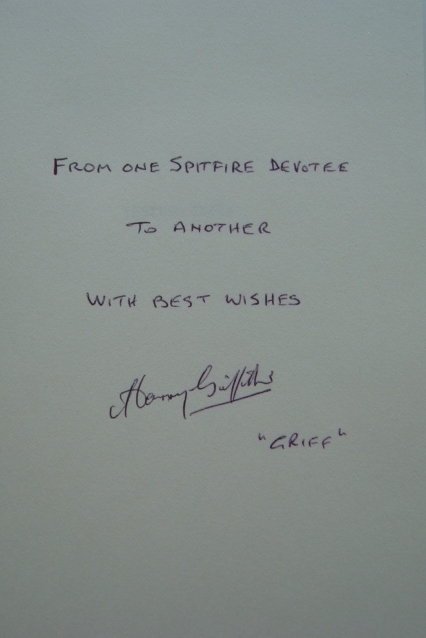 FROM ONE SPITFIRE DEVOTEE
TO ANOTHER
WITH BEST WISHES
Harry Griffiths
"GRIFF"